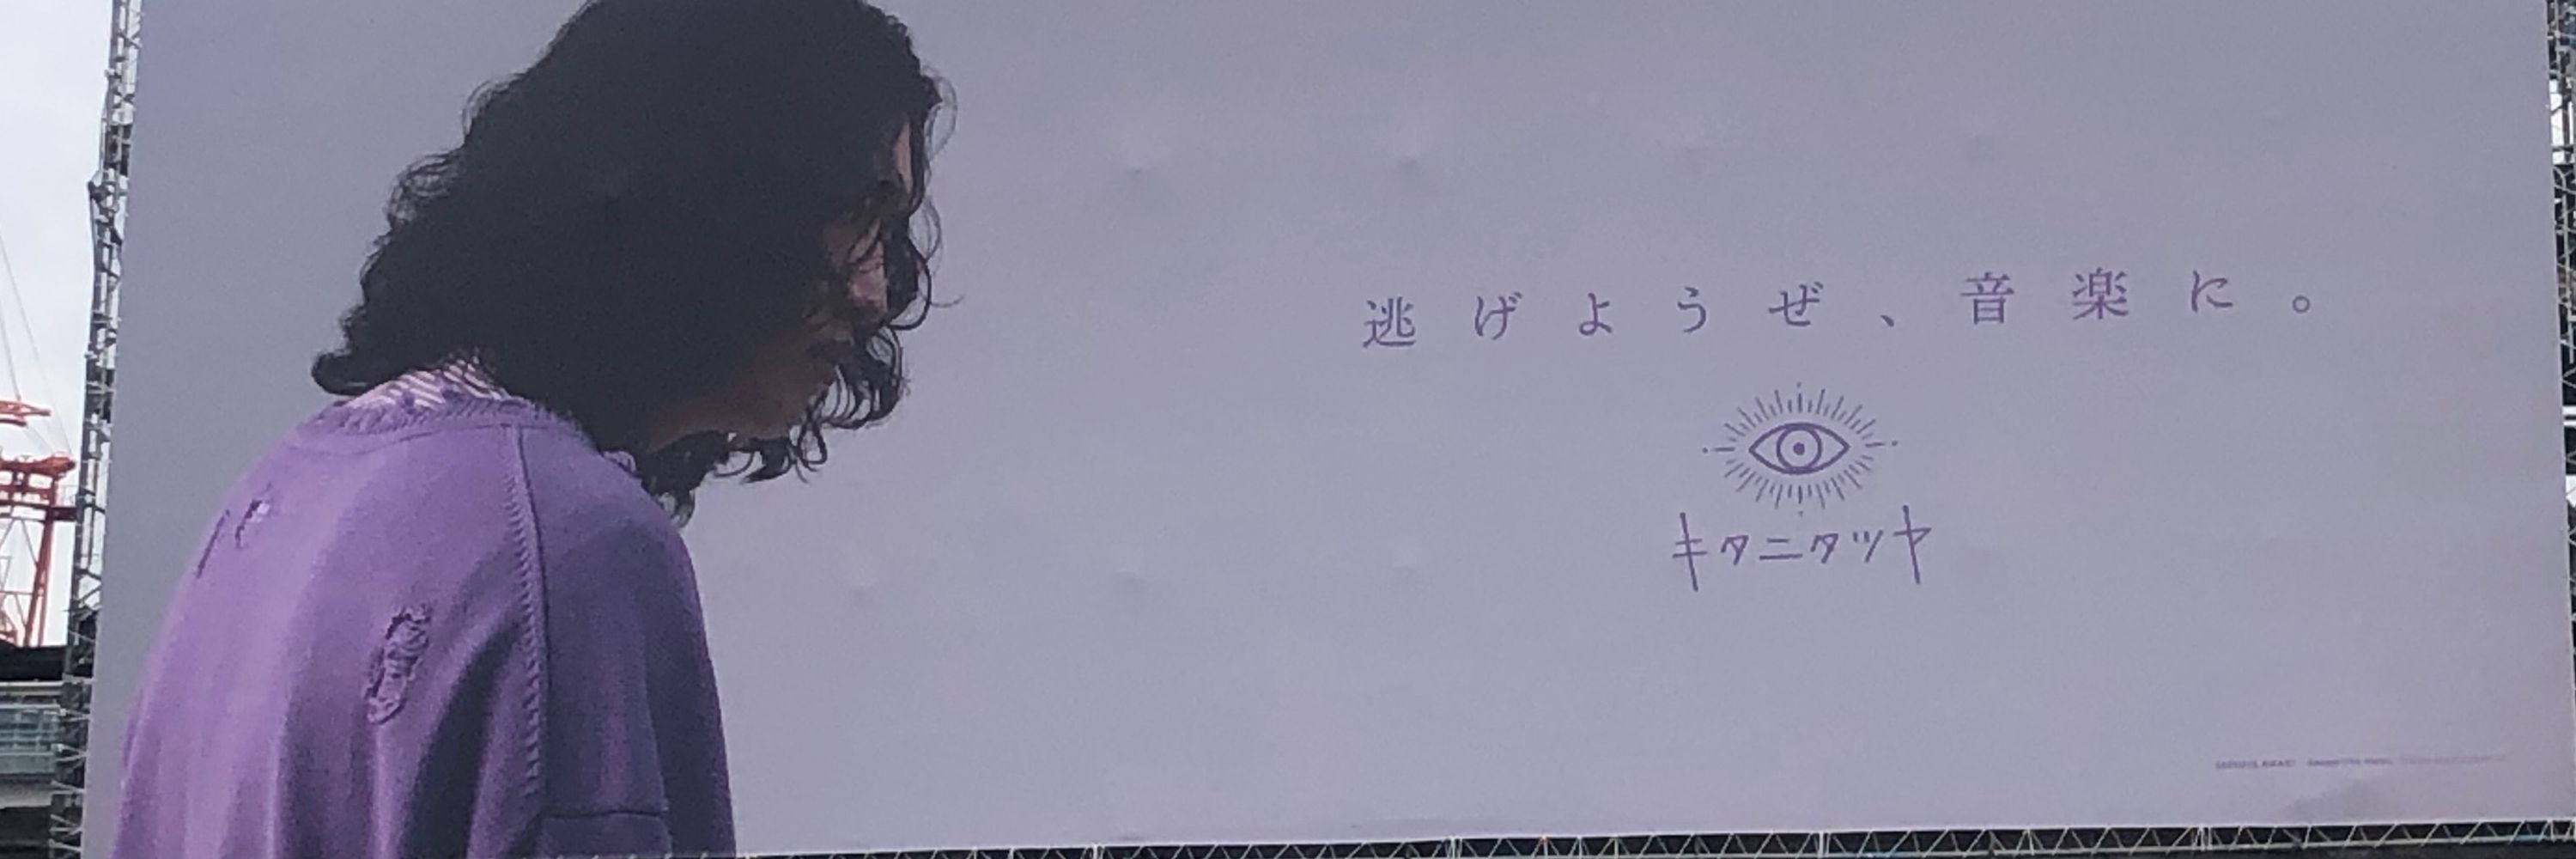 逃げようぜ、音楽に。
キタニタツヤ